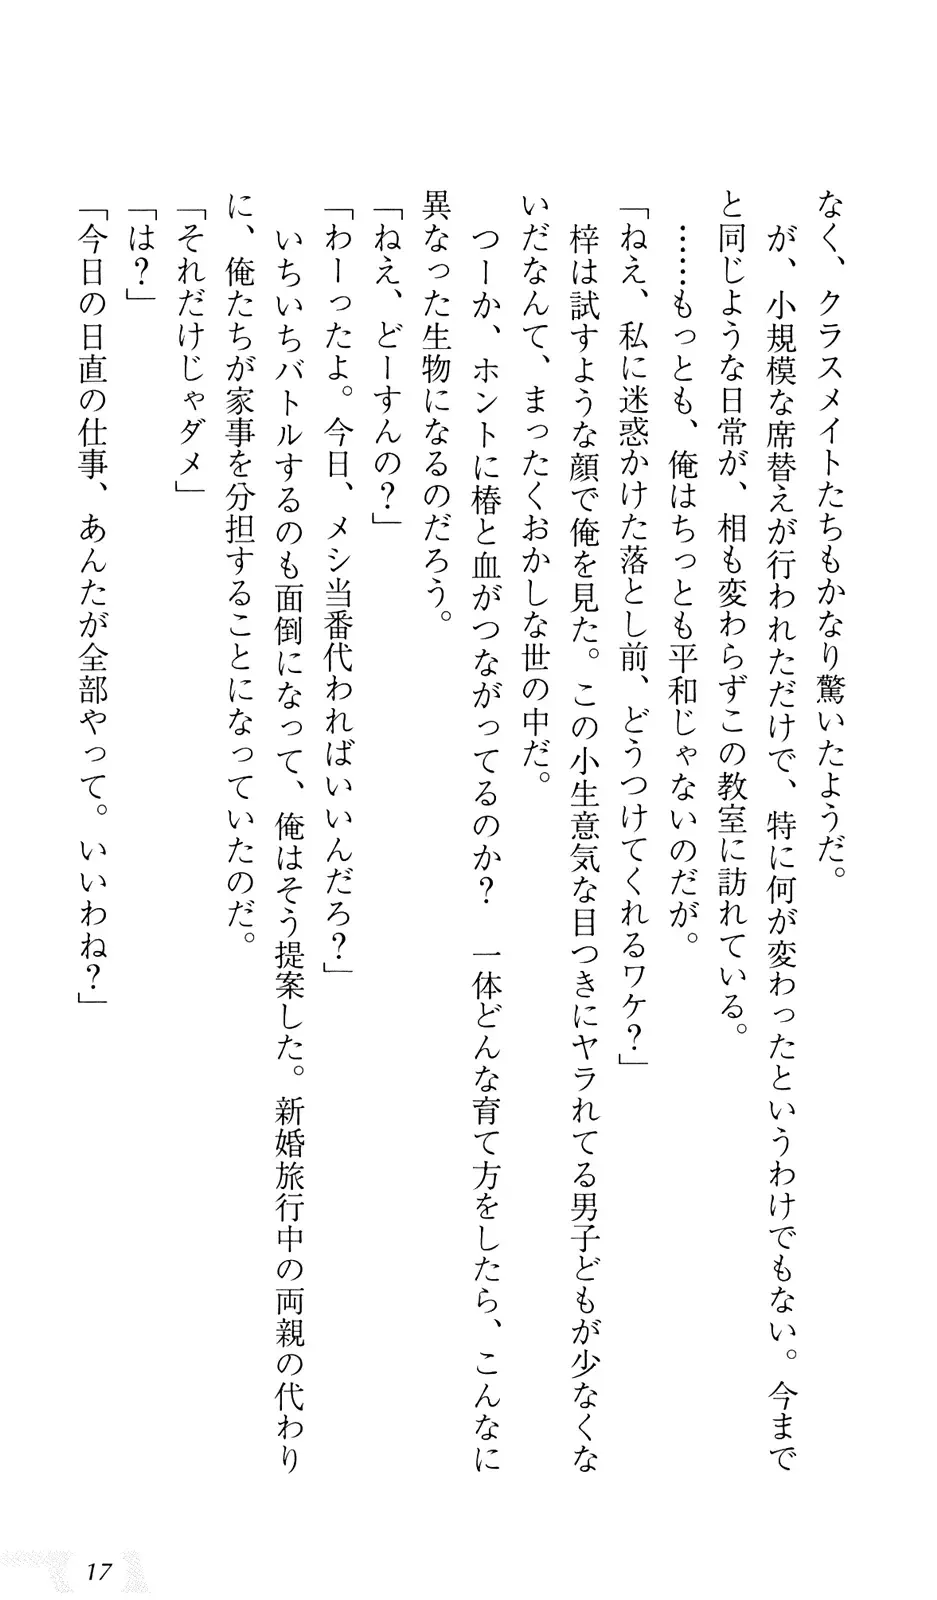 なく、クラスメイトたちもかなり驚いたようだ。
が、小規模な席替えが行われただけで、特に何が変わったというわけでもない。今まで
と同じような日常が、相も変わらずこの教室に訪れている。
……もっとも、俺はちっとも平和じゃないのだが。
「ねえ、私に迷惑かけた落とし前、どうつけてくれるワケ？」
梓は試すような顔で俺を見た。この小生意気な目つきにヤラれてる男子どもが少なくな
いだなんて、まったくおかしな世の中だ。
つーか、ホントに椿と血がつながってるのか？　一体どんな育て方をしたら、こんなに
異なった生物になるのだろう。
「ねえ、どーすんの？」
「わーったよ。今日、メシ当番代わればいいんだろ？」
いちいちバトルするのも面倒になって、俺はそう提案した。新婚旅行中の両親の代わり
に、俺たちが家事を分担することになっていたのだ。
「それだけじゃダメ」
「は？」
「今日の日直の仕事、あんたが全部やって。いいわね？」
17